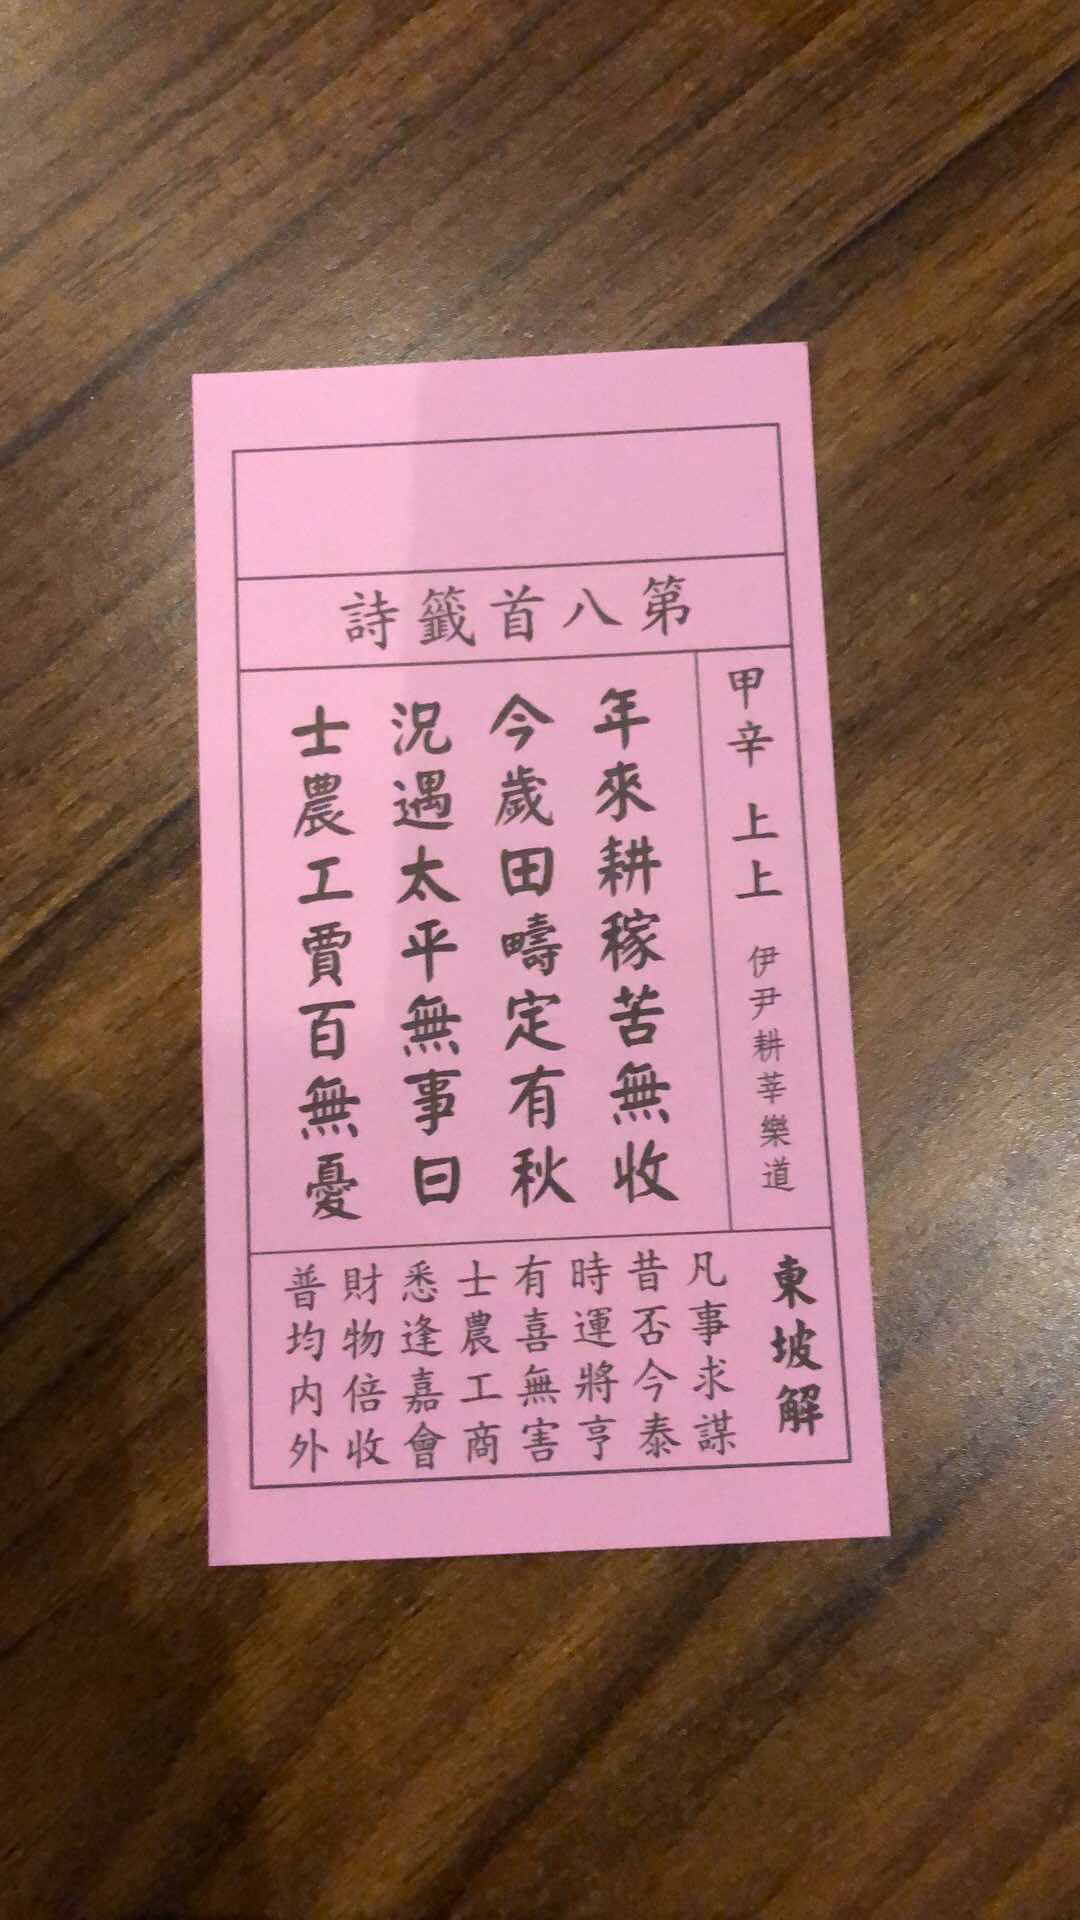 第八首籤詩
甲辛 上上 伊尹耕莘樂道
年來耕稼苦無收
今歲田疇定有秋
況遇太平無事日
士農工賈百無憂
東坡解
凡事求謀
昔否今泰
時運將亨
有喜無害
士農工商
悉逢嘉會
財物倍收
普均內外